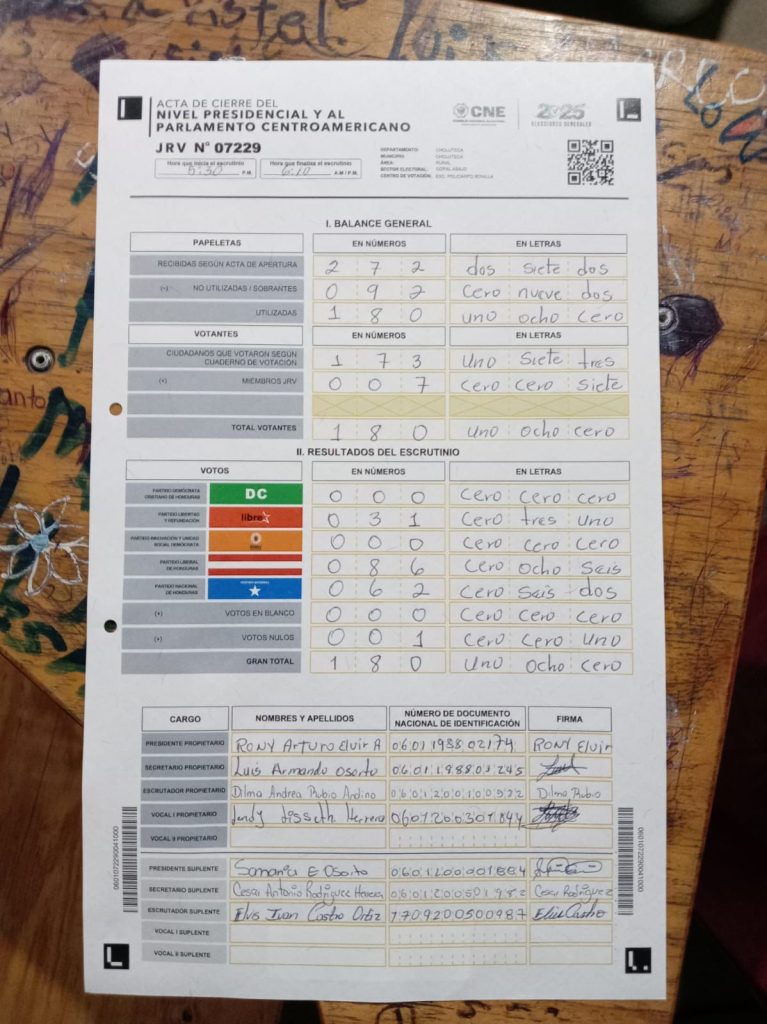 ACTA DE CIERRE DEL
NIVEL PRESIDENCIAL Y AL
PARLAMENTO CENTROAMERICANO
CNE
2025
ELECCIONES GENERALES
JRV N° 07229
Hora que inicia el escrutinio
5:30 P.M.
Hora que finaliza el escrutinio
6:10 A.M / P.M.
DEPARTAMENTO: CHOLUTECA
MUNICIPIO: CHOLUTECA
ÁREA: RURAL
SECTOR ELECTORAL: COPAL ABAJO
CENTRO DE VOTACIÓN: ESC. POLICARPO BONILLA
I. BALANCE GENERAL
PAPELETAS EN NÚMEROS EN LETRAS
RECIBIDAS SEGÚN ACTA DE APERTURA 2 7 2 dos siete dos
(-) NO UTILIZADAS / SOBRANTES 0 9 2 Cero nueve dos
UTILIZADAS 1 8 0 uno ocho cero
VOTANTES EN NÚMEROS EN LETRAS
CIUDADANOS QUE VOTARON SEGÚN
CUADERNO DE VOTACIÓN 1 7 3 Uno Siete tres
(+) MIEMBROS JRV 0 0 7 Cero Cero Siete
TOTAL VOTANTES 1 8 0 Uno Ocho Cero
II. RESULTADOS DEL ESCRUTINIO
VOTOS EN NÚMEROS EN LETRAS
PARTIDO DEMÓCRATA
CRISTIANO DE HONDURAS DC 0 0 0 Cero Cero Cero
PARTIDO LIBERTAD
Y REFUNDACIÓN libre 0 3 1 Cero tres Uno
PARTIDO INNOVACIÓN Y UNIDAD
SOCIAL DEMÓCRATA 0 0 0 Cero Cero Cero
PARTIDO LIBERAL
DE HONDURAS 0 8 6 Cero Ocho Seis
PARTIDO NACIONAL
DE HONDURAS 0 6 2 Cero Seis dos
(+) VOTOS EN BLANCO 0 0 0 Cero Cero Cero
(+) VOTOS NULOS 0 0 1 Cero Cero Uno
GRAN TOTAL 1 8 0 Uno Ocho Cero
CARGO NOMBRES Y APELLIDOS NÚMERO DE DOCUMENTO NACIONAL DE IDENTIFICACIÓN FIRMA
PRESIDENTE PROPIETARIO RONY Arturo Elvir A 0601198802174 RONY Elvir
SECRETARIO PROPIETARIO Luis Armando Osorto 0601198801245
ESCRUTADOR PROPIETARIO Dilma Andrea Rubio Andino 0601200100932 Dilma Rubio
VOCAL I PROPIETARIO Lisseth Herrera 0601200301844
VOCAL II PROPIETARIO
PRESIDENTE SUPLENTE Samaria E Osorto 0601200001884
SECRETARIO SUPLENTE Cesar Antonio Rodriguez Herrera 0601200501982 Cesar Rodriguez
ESCRUTADOR SUPLENTE Elvis Ivan Castro Ortiz 1709200500987 Elvis Castro
VOCAL I SUPLENTE
VOCAL II SUPLENTE
0601072290041000
0601072290041000